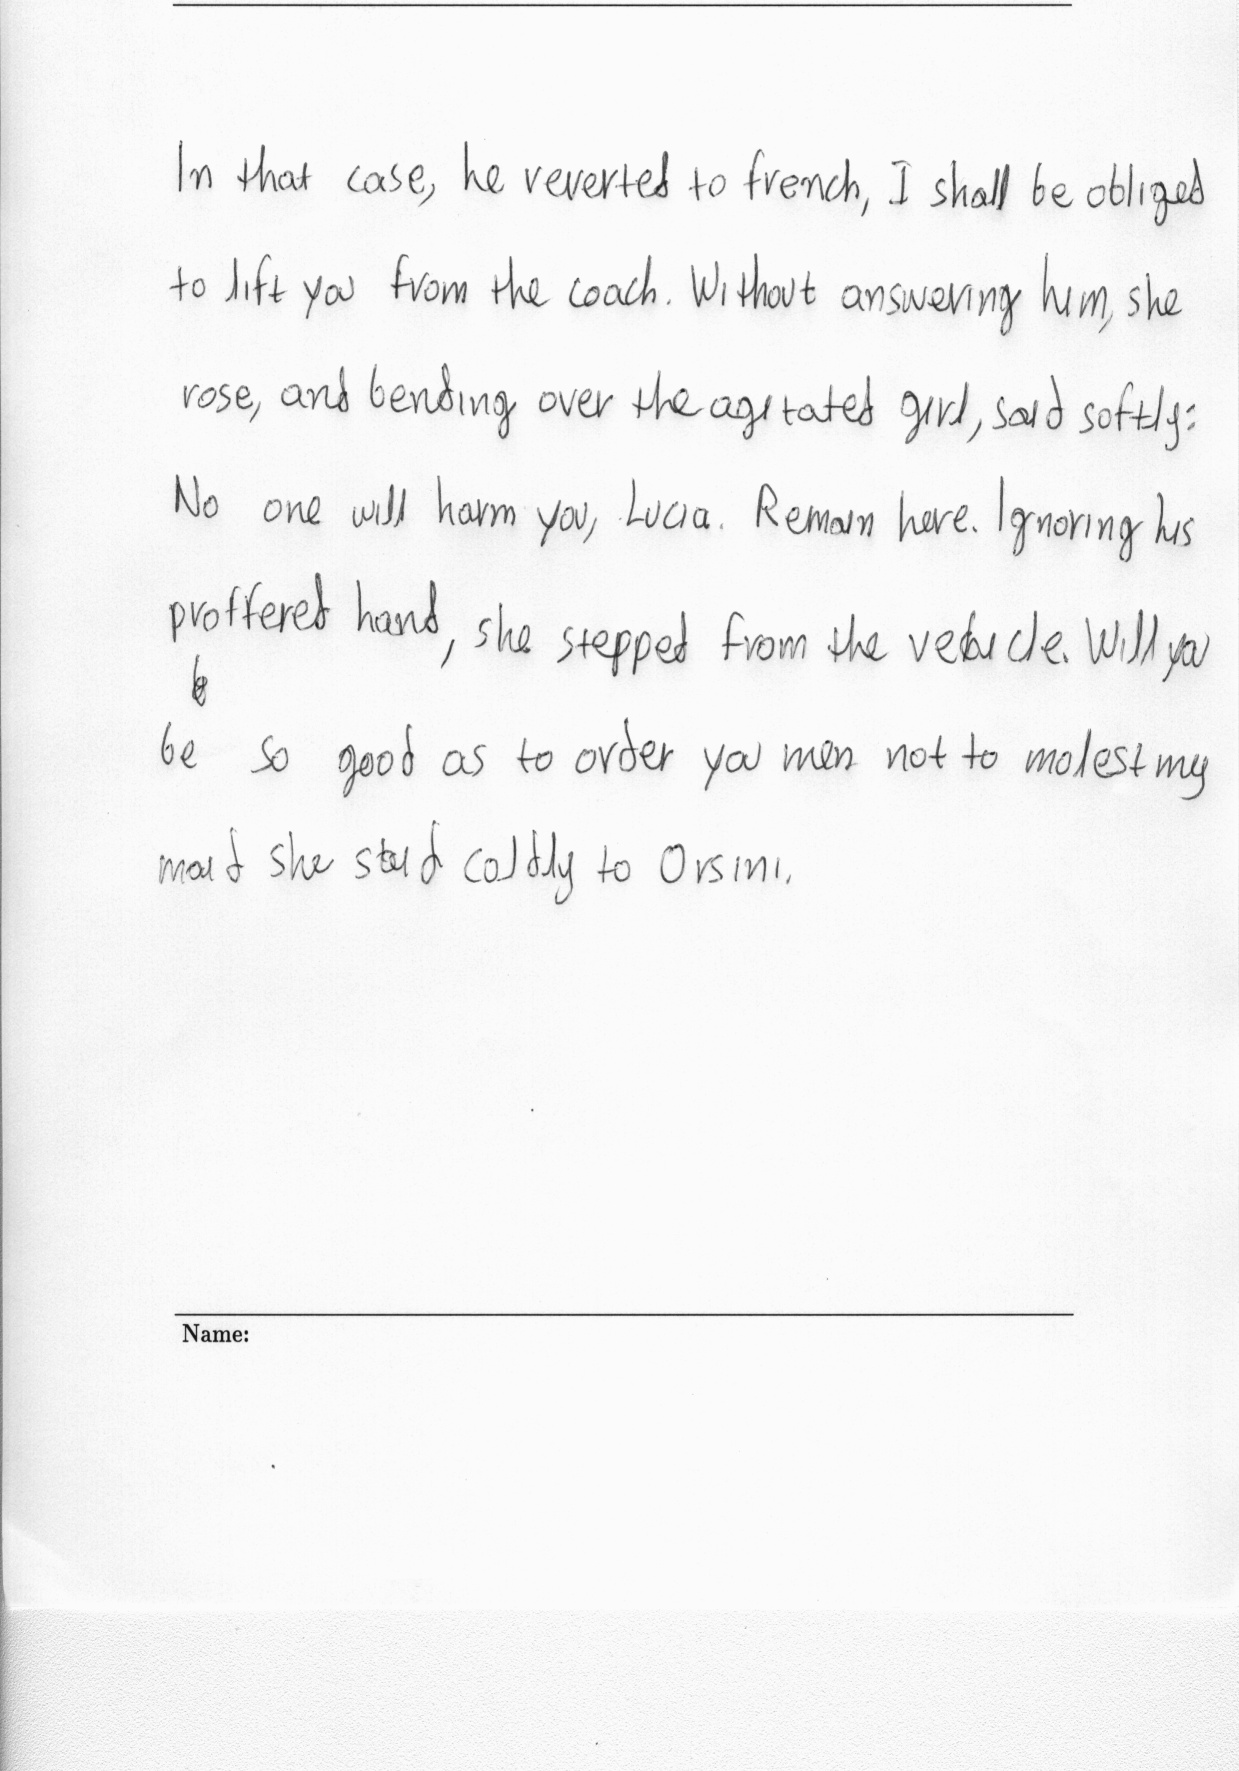 In that case, he reverted to french, I shall be obliged
to lift you from the coach. Without answering him, she
rose, and bending over the agitated girl, said softly:
No one will harm you, Lucia. Remain here. Ignoring his
proffered hand, she stepped from the vehicle. Will you
be so good as to order you men not to molest my
maid she said coldly to Orsini.
Name: